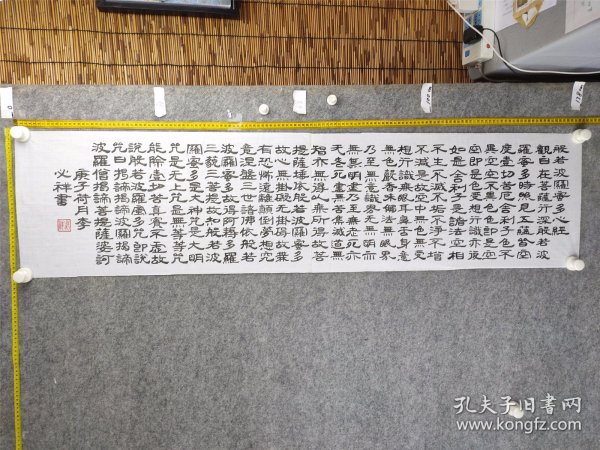 般若波羅蜜多心経
觀自在菩薩行深般若波
羅蜜多時照見五蘊皆空
度壹切苦厄舍利子色不
異空空不異色色即是空
空即是色受想行識亦復
如是舍利子是諸法空相
不生不滅不垢不淨不增
不減是故空中無色無受
想行識無眼耳鼻舌身意
無色聲香味觸法無眼界
乃至無意識界无無明亦
無無明盡乃至無老死亦
无老死盡無苦集滅道無
智亦無得以無所得故菩
提薩埵依般若波羅蜜多
故心無掛礙无掛碍故無
有恐怖遠離顛倒夢想究
竟涅槃三世諸佛依般若
波羅蜜多故得阿耨多羅
三藐三菩提故知般若波
羅蜜多是大神咒是大明
咒是无上咒是無等等咒
能除壹切苦真實不虛故
說般若波羅蜜多咒即說
咒曰揭諦揭諦波羅揭諦
波羅僧揭諦菩提薩婆訶
庚子荷月李
必祥書
孔夫子旧书网
www.kongfz.com